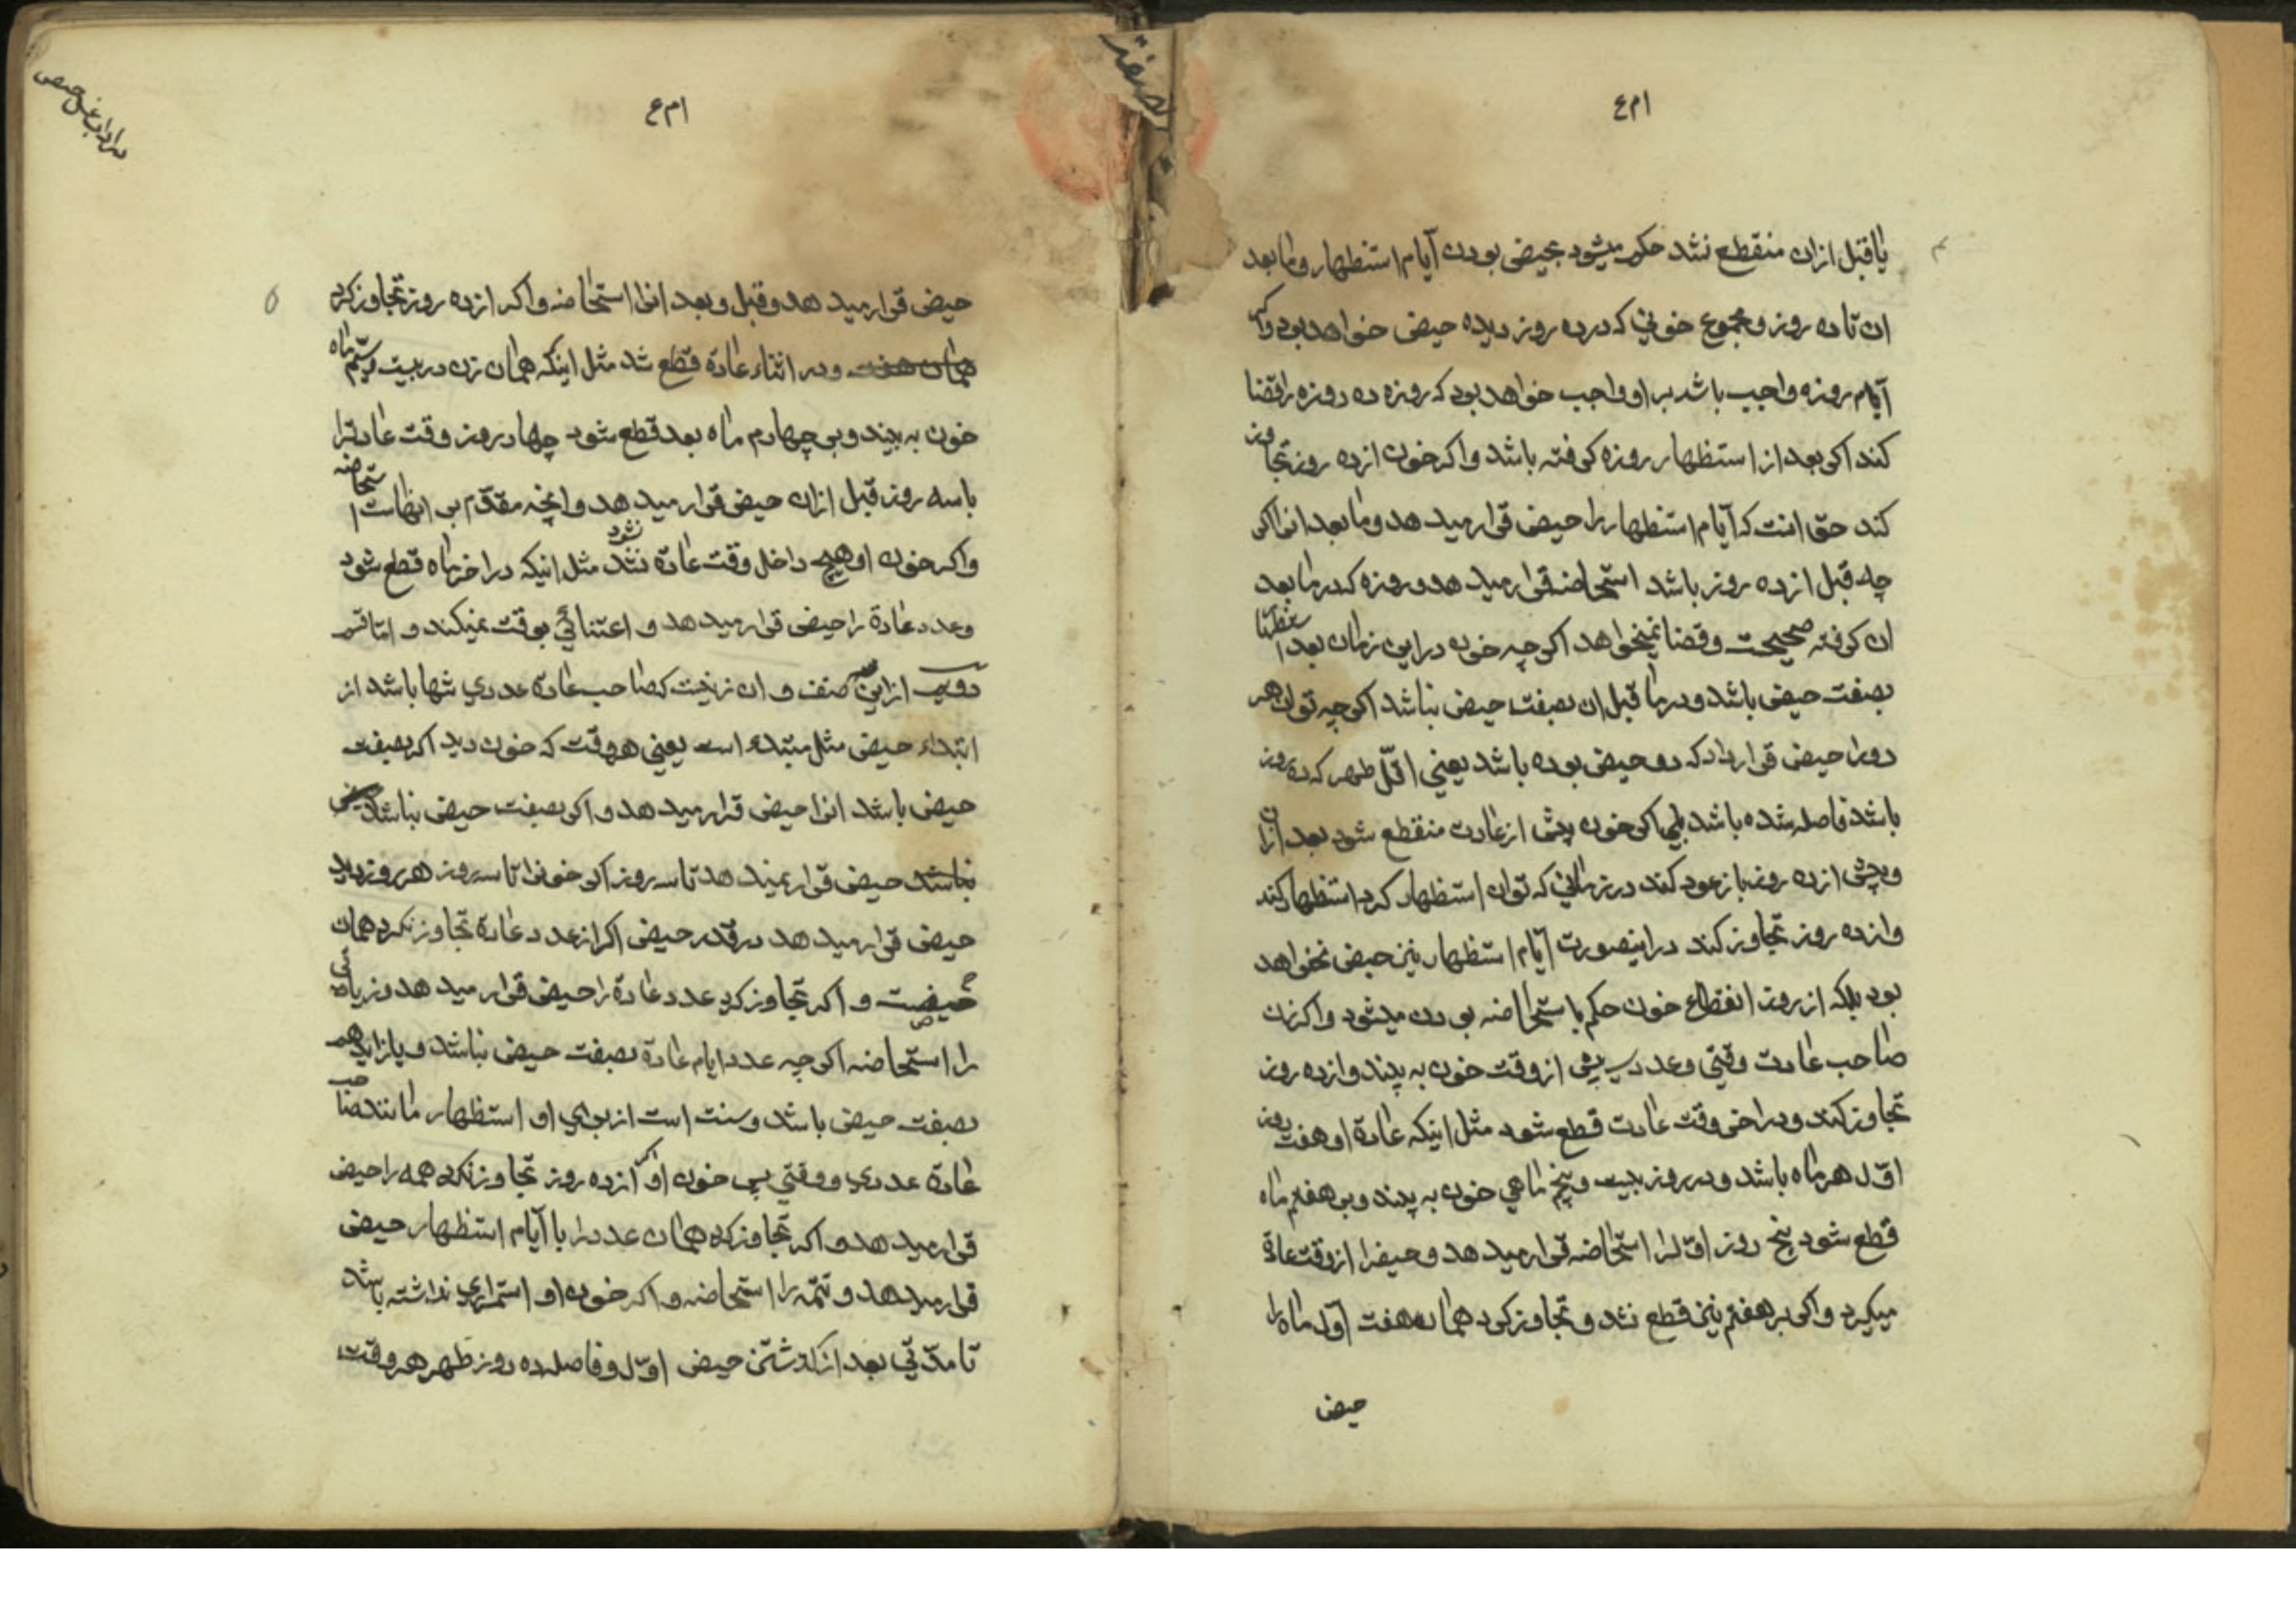 ام ع
یا قبل ازان منقطع نشد حکم میشود بحیض بودن آیام استظهار و ما بعد
ان تا ده روز و مجموع خونی که در ده روز دیده حیض خواهد بود و اکر
آیام روزه واجب باشد بر او واجب خواهد بود که روزه ده روزه را قضا
کند اکر بعد از استظهار روزه کرفته باشد و اکر خون از ده روز تجاوز
کند حق انست که آیام استظهار را حیض قرار میدهد و ما بعد انرا اکر
چه قبل از ده روز باشد استحاضه قرار میدهد و روزه که در ما بعد
ان کرفته صحیحست و قضا نمیخواهد اکر چه خون در این زمان بعد استظهار
بصفت حیض باشد و در ما قبل ان بصفت حیض نباشد اکر چه توان هر
دو را حیض قرار داد که دو حیض بوده باشد یعنی اقلّ طهر که ده روز
باشد فاصله شده باشد بلی اکر خون پیش از عادت منقطع شود بعد ازان
و پیش از ده روز باز عود کند در زمانی که توان استظهار کرد استظهار کند
و از ده روز تجاوز کند در اینصورت آیام استظهار نیز حیض نخواهد
بود بلکه از روز انقطاع خون حکم باستحاضه بودن میشود و اکر زن
صاحب عادت وقتی و عددی پیش از وقت خون به بیند و از ده روز
تجاوز کند و در اخر وقت عادت قطع شود مثل اینکه عادة او هفت روز
اوّل هر ماه باشد و در روز بیست و پنج ماهی خون به بیند و بر هفتم ماه
قطع شود پنج روز اوّل را استحاضه قرار میدهد و حیض را از وقت عادة
میکیرد و اکر بر هفتم نیز قطع نشد و تجاوز کرد همان هفت اوّل ماه را
حیض
ام ع
حیض قرار میدهد و قبل و بعد انرا استحاضه و اکر از ده روز تجاوز کرد
همان هفت و در اثناء عادة قطع شد مثل اینکه همان زن در بیست و یکم ماه
خون به بیند و بر چهارم ماه بعد قطع شود چهار روز وقت عادترا
با سه روز قبل ازان حیض قرار میدهد و انچه مقدّم بر انهاست استحاضه
و اکر خون او هیچ داخل وقت عادة نشد نشود مثل انیکه در اخر ماه قطع شود
عدد عادة را حیض قرار میدهد و اعتنائی بوقت نمیکند و امّا قسم
دویم از این صنف و ان زنیست که صاحب عادة عددی تنها باشد از
ابتداء حیض مثل مبتدءه است یعنی هر وقت که خون دید اکر بصفت
حیض باشد انرا حیض قرار میدهد و اکر بصفت حیض نباشد
نباشد حیض قرار نمیدهد تا سه روز اکر خونرا تا سه روز هر روز دید
حیض قرار میدهد در قدر حیض اکر از عدد عادة تجاوز نکرد همان
حیضست و اکر تجاوز کرد عدد عادة را حیض قرار میدهد و زیاده
را استحاضه اکر چه عدد ایام عادة بصفت حیض نباشد و یا زاید هم
بصفت حیض باشد و سنت است از برای او استظهار مانند صاحب
عادة عددی و وقتی پس خون او اکر از ده روز تجاوز نکرد همه را حیض
قرار میدهد و اکر تجاوز کرد همان عدد را با آیام استظهار حیض
قرار میدهد و تتمّه را استحاضه و اکر خون او استمراری نداشته باشد
تا مدّتی بعد از کذشتن حیض اوّل و فاصله ده روز طهر هر وقت